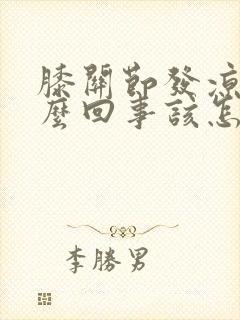 膝關節發涼
麼回事該怎
李勝男